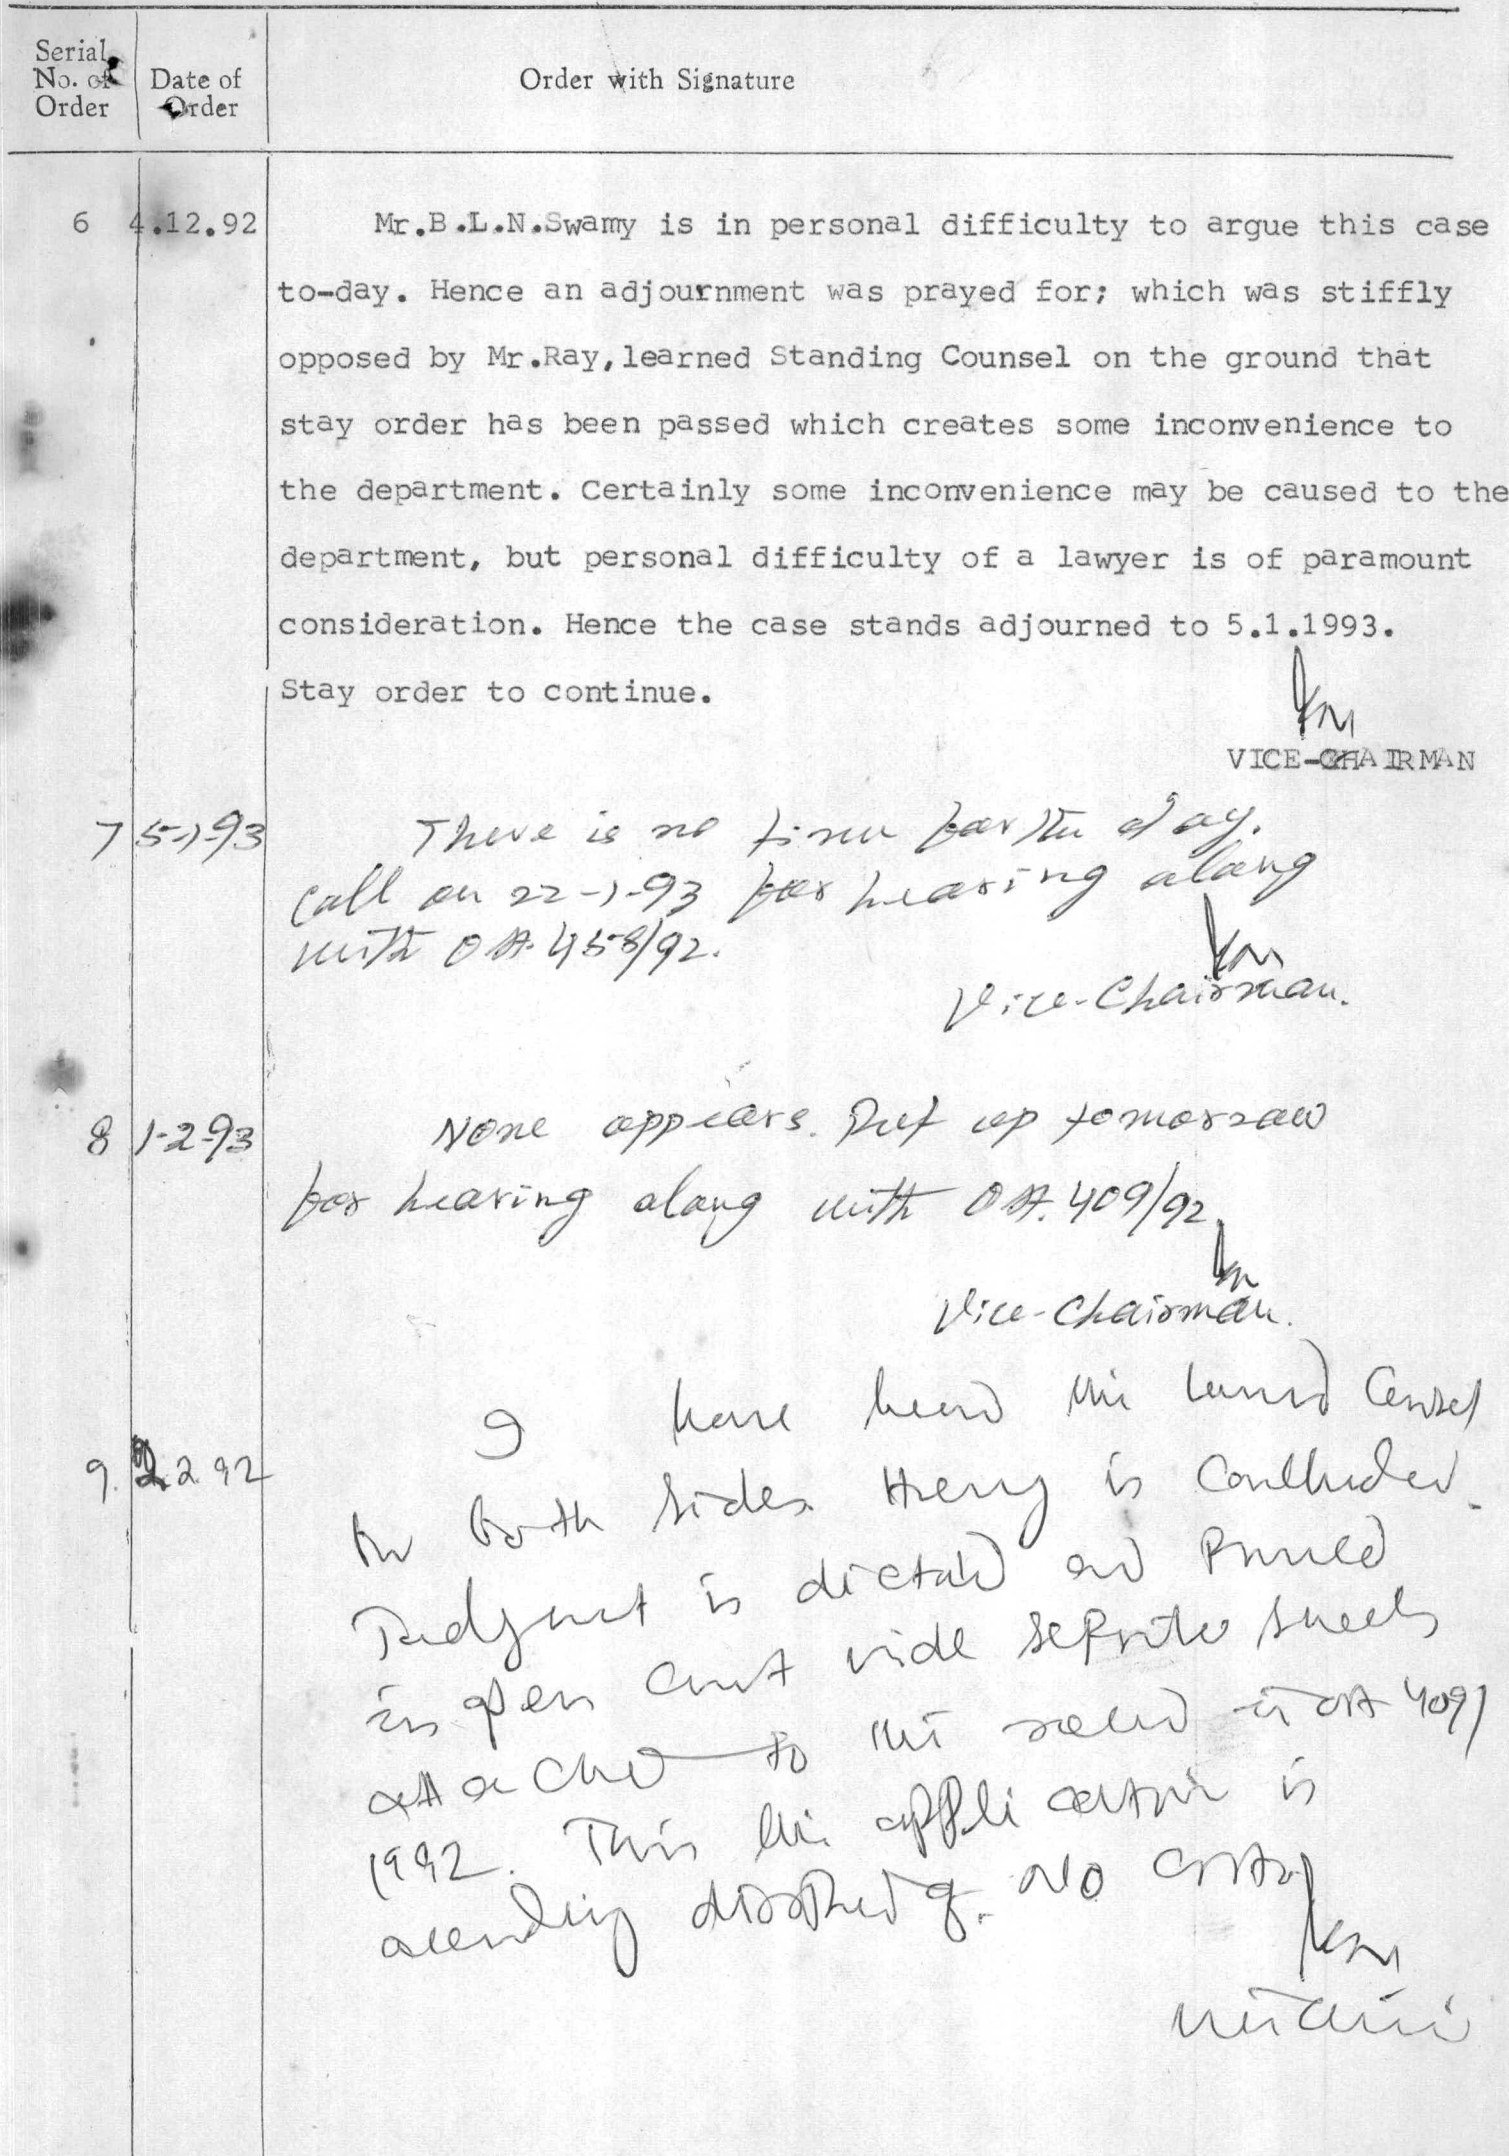 Serial No. of Order
Date of Order
Order with Signature
6 4.12.92 Mr.B.L.N.Swamy is in personal difficulty to argue this case
to-day. Hence an adjournment was prayed for; which was stiffly
opposed by Mr.Ray,learned Standing Counsel on the ground that
stay order has been passed which creates some inconvenience to
the department. Certainly some inconvenience may be caused to the
department, but personal difficulty of a lawyer is of paramount
consideration. Hence the case stands adjourned to 5.1.1993.
Stay order to continue.
VICE-CHAIRMAN
7 5-1-93 There is no time for the day.
Call on 22-1-93 for hearing along
with OA 458/92.
Vice-Chairman.
8 1-2-93 None appears. Put up tomorrow
for hearing along with OA. 409/92.
Vice-Chairman.
I have heard the learned Counsel
9. 2.2.92
for both sides. Hearing is Concluded.
Judgment is dictated and
in open Court vide separate sheets
attached to the record in OA 409/
1992. This application is
accordingly disposed of. No costs